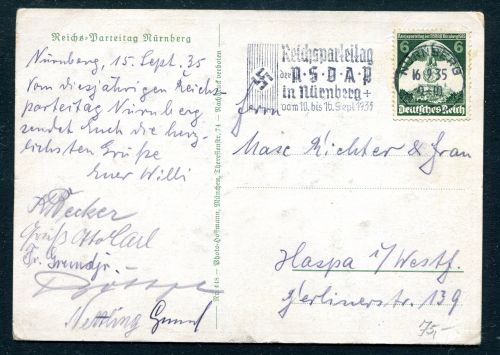 Reichs-Parteitag Nürnberg
Nürnberg, 15. Sept. 35
Vom diesjährigen Reichs-
parteitag Nürnberg
sendet Euch die herz-
lichsten Grüße
Euer Willi
R. Becker
Gruß Otto Carl
Fr.
Nettling
Nr. 418 - Photo-Hoffmann, München, Theresienstr. 74 - Nachdruck verboten
Reichsparteitag
der N·S·D·A·P
in Nürnberg +
vom 10. bis 16. Sept. 1935
Reichsparteitag der NSDAP Nürnberg 1935
6 6
NÜRNBERG
16.9.35
Deutsches Reich
Herrn
Max Richter & Frau
Haspa i/Westf.
Berlinerstr. 139
75,-